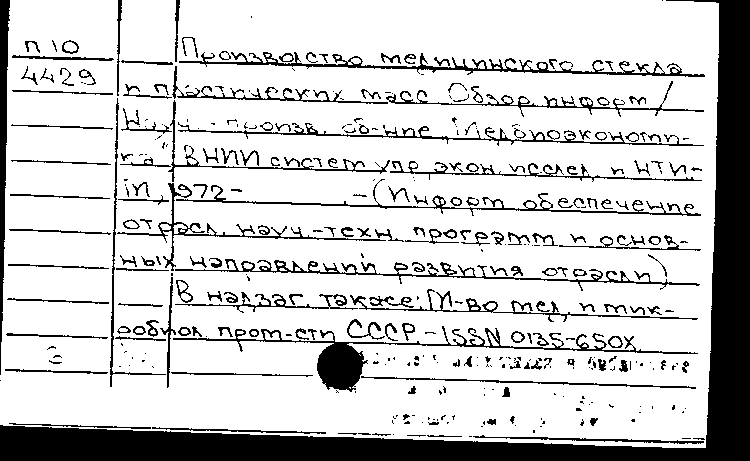 П 10 Производство медицинского стекла
4429 и пластических масс. Обзор. информ /
Науч.-произв. об-ние „Медбиоэкономи-
ка" ВНИИ систем упр, экон. исслед. и НТИ.-
М, 1972-         .-(Информ обеспечение
отрасл. науч.-техн. программ и основ-
ных направлений развития отрасли)
В надзаг. также: М-во мед. и мик-
робиол пром-сти СССР.-ISSN 0135-650X